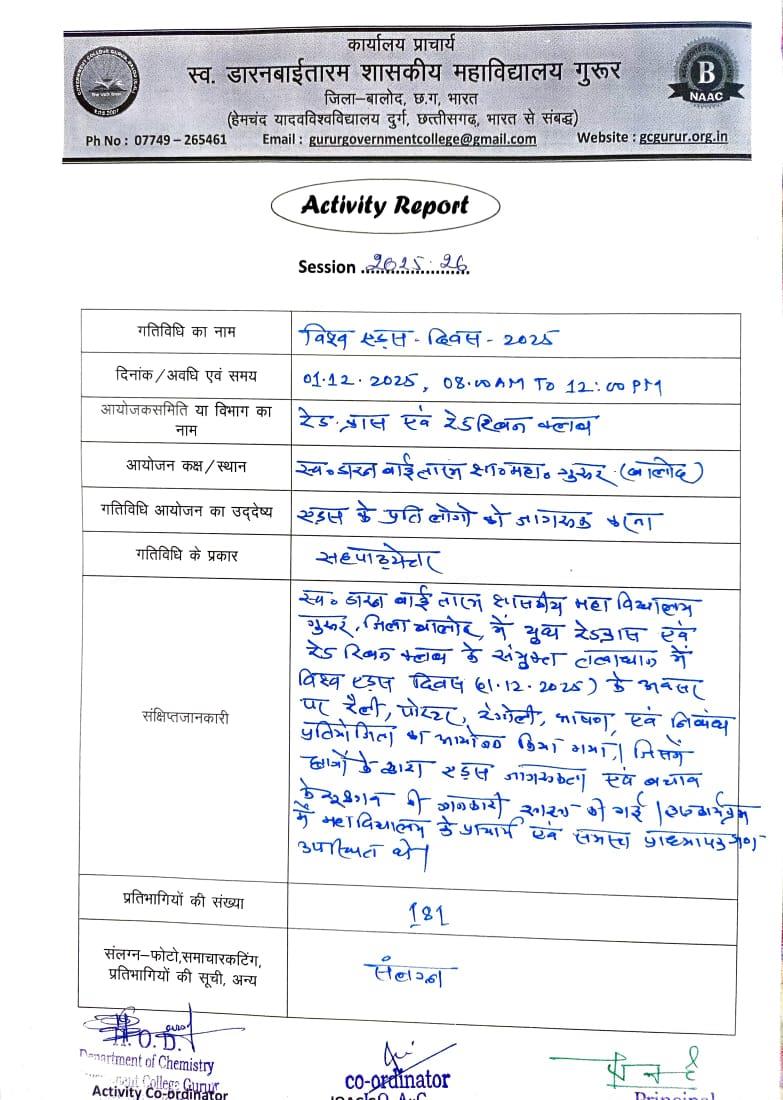 कार्यालय प्राचार्य
स्व. डारनबाईतारम शासकीय महाविद्यालय गुरूर
जिला–बालोद, छ.ग, भारत
(हेमचंद यादवविश्वविद्यालय दुर्ग, छत्तीसगढ़, भारत से संबद्ध)
Ph No : 07749 – 265461 Email : gururgovernmentcollege@gmail.com Website : gcgurur.org.in
B
NAAC
Activity Report
Session 2025-26
गतिविधि का नाम विश्व एड्स - दिवस - 2025
दिनांक/अवधि एवं समय 01.12.2025, 08.00AM TO 12:00 PM
आयोजकसमिति या विभाग का
नाम रेड क्रास एवं रेड रिबन क्लब
आयोजन कक्ष/स्थान स्व० डारन बाई तारम शा० महा० गुरूर (बालोद)
गतिविधि आयोजन का उद्देष्य एड्स के प्रति लोगो को जागरूक करना
गतिविधि के प्रकार सहपाठ्येत्तर
संक्षिप्तजानकारी
स्व० डारन बाई तारम शासकीय महाविद्यालय
गुरूर, जिला बालोद, में युवा रेडक्रास एवं
रेड रिबन क्लब के संयुक्त तत्वाधान में
विश्व एड्स दिवस (01.12.2025) के अवसर
पर रैली, पोस्टर, रंगोली, भाषण, एवं निबंध
प्रतियोगिता का आयोजन किया गया। जिसमें
छात्रों के द्वारा एड्स जागरूकता एवं बचाव
के की जानकारी की गई।
में महाविद्यालय के प्राचार्य एवं समस्त प्राध्यापकगण
उपस्थित थे।
प्रतिभागियों की संख्या 181
संलग्न–फोटो,समाचारकटिंग,
प्रतिभागियों की सूची, अन्य संलग्न
H.O.D.
Department of Chemistry
College Gurur
Activity Co-ordinator
co-ordinator
Principal